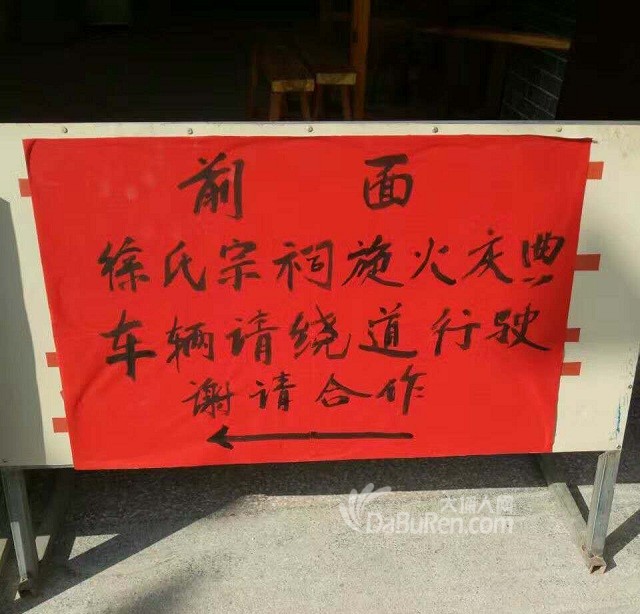 前面
徐氏宗祠施火庆典
车辆请绕道行驶
谢请合作
大埔人网
DaBuRen.com